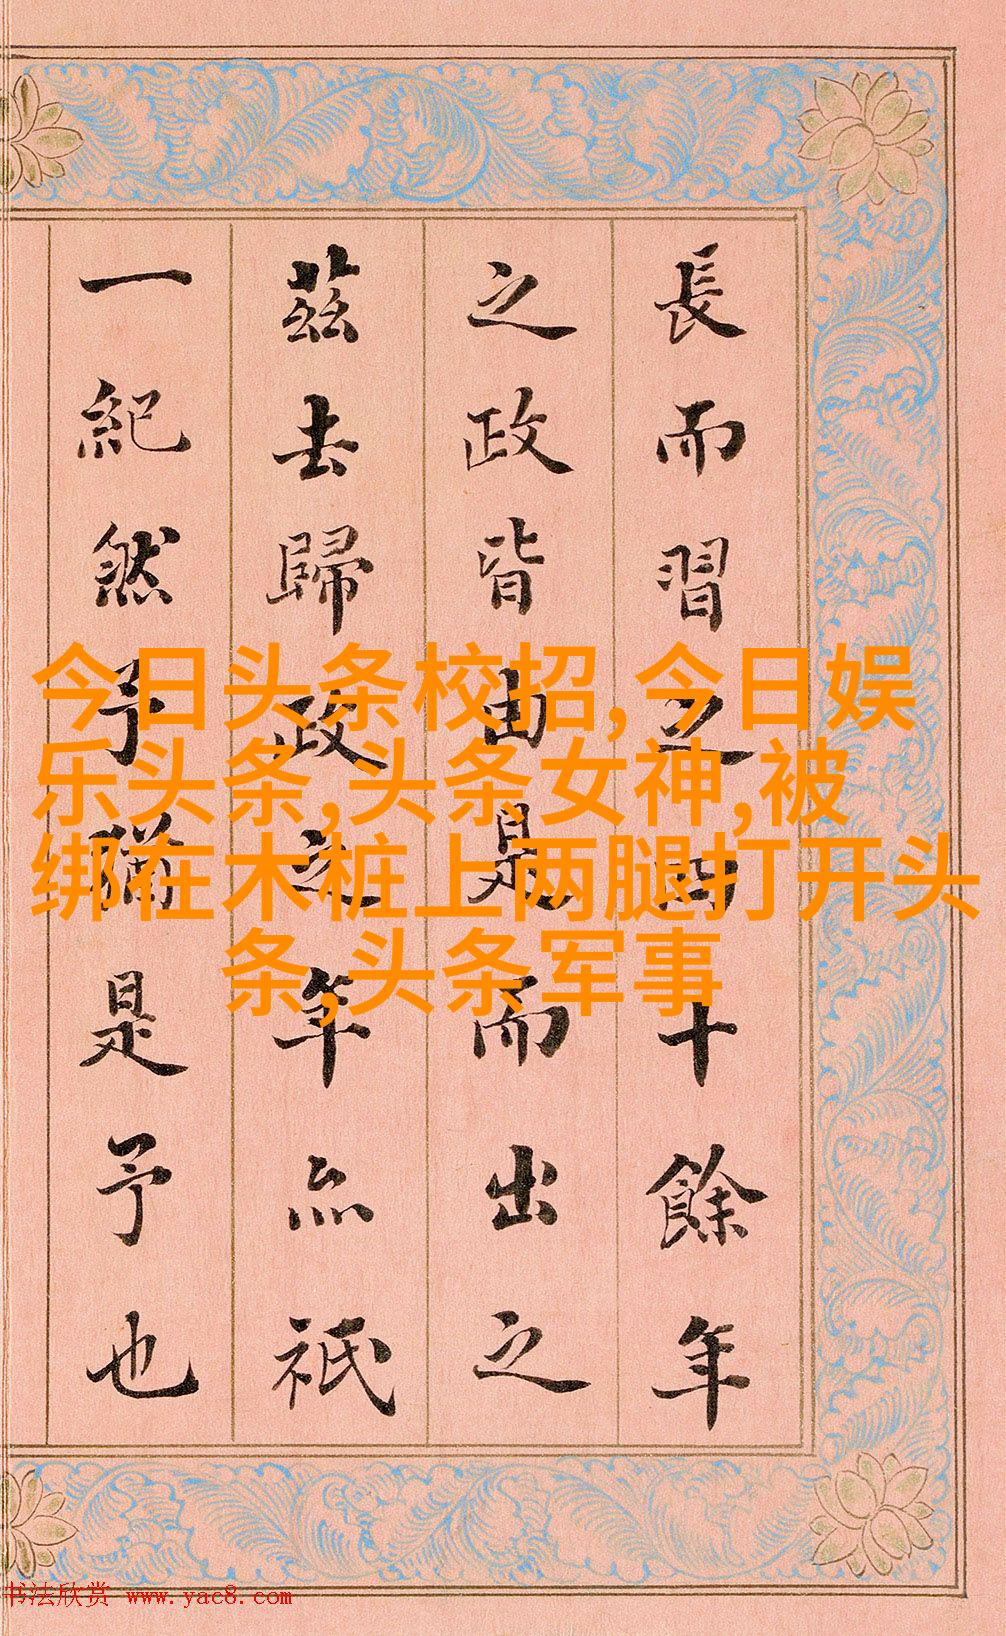 長而習之四十餘年
之政皆由是而出之
茲去歸政之年亦祇
一紀然予猶是予也
今日头条校招,今日娱
乐头条,头条女神,被
绑在木桩上两腿打开头
条,头条军事
书法欣赏 www.yac8.com